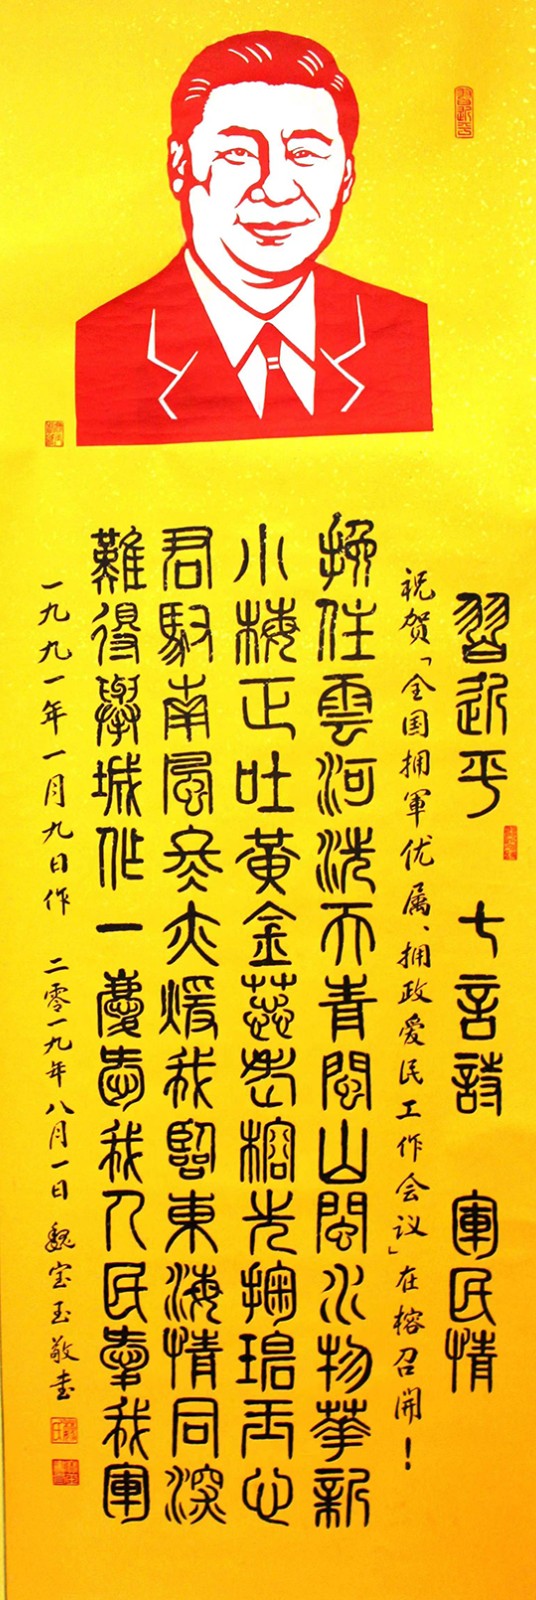 習近平 七言詩 軍民情
祝贺「全国拥軍优属、拥政爱民工作会议」在榕召开！
挽住雲河洗天青閩山閩水物華新
小梅正吐黃金蕊老榕先掬碧玉心
君馭南風冬亦煖我臨東海情同深
難得舉城作一慶愛我人民愛我軍
一九九一年一月九日作 二零一九年八月一日 魏宝玉敬書